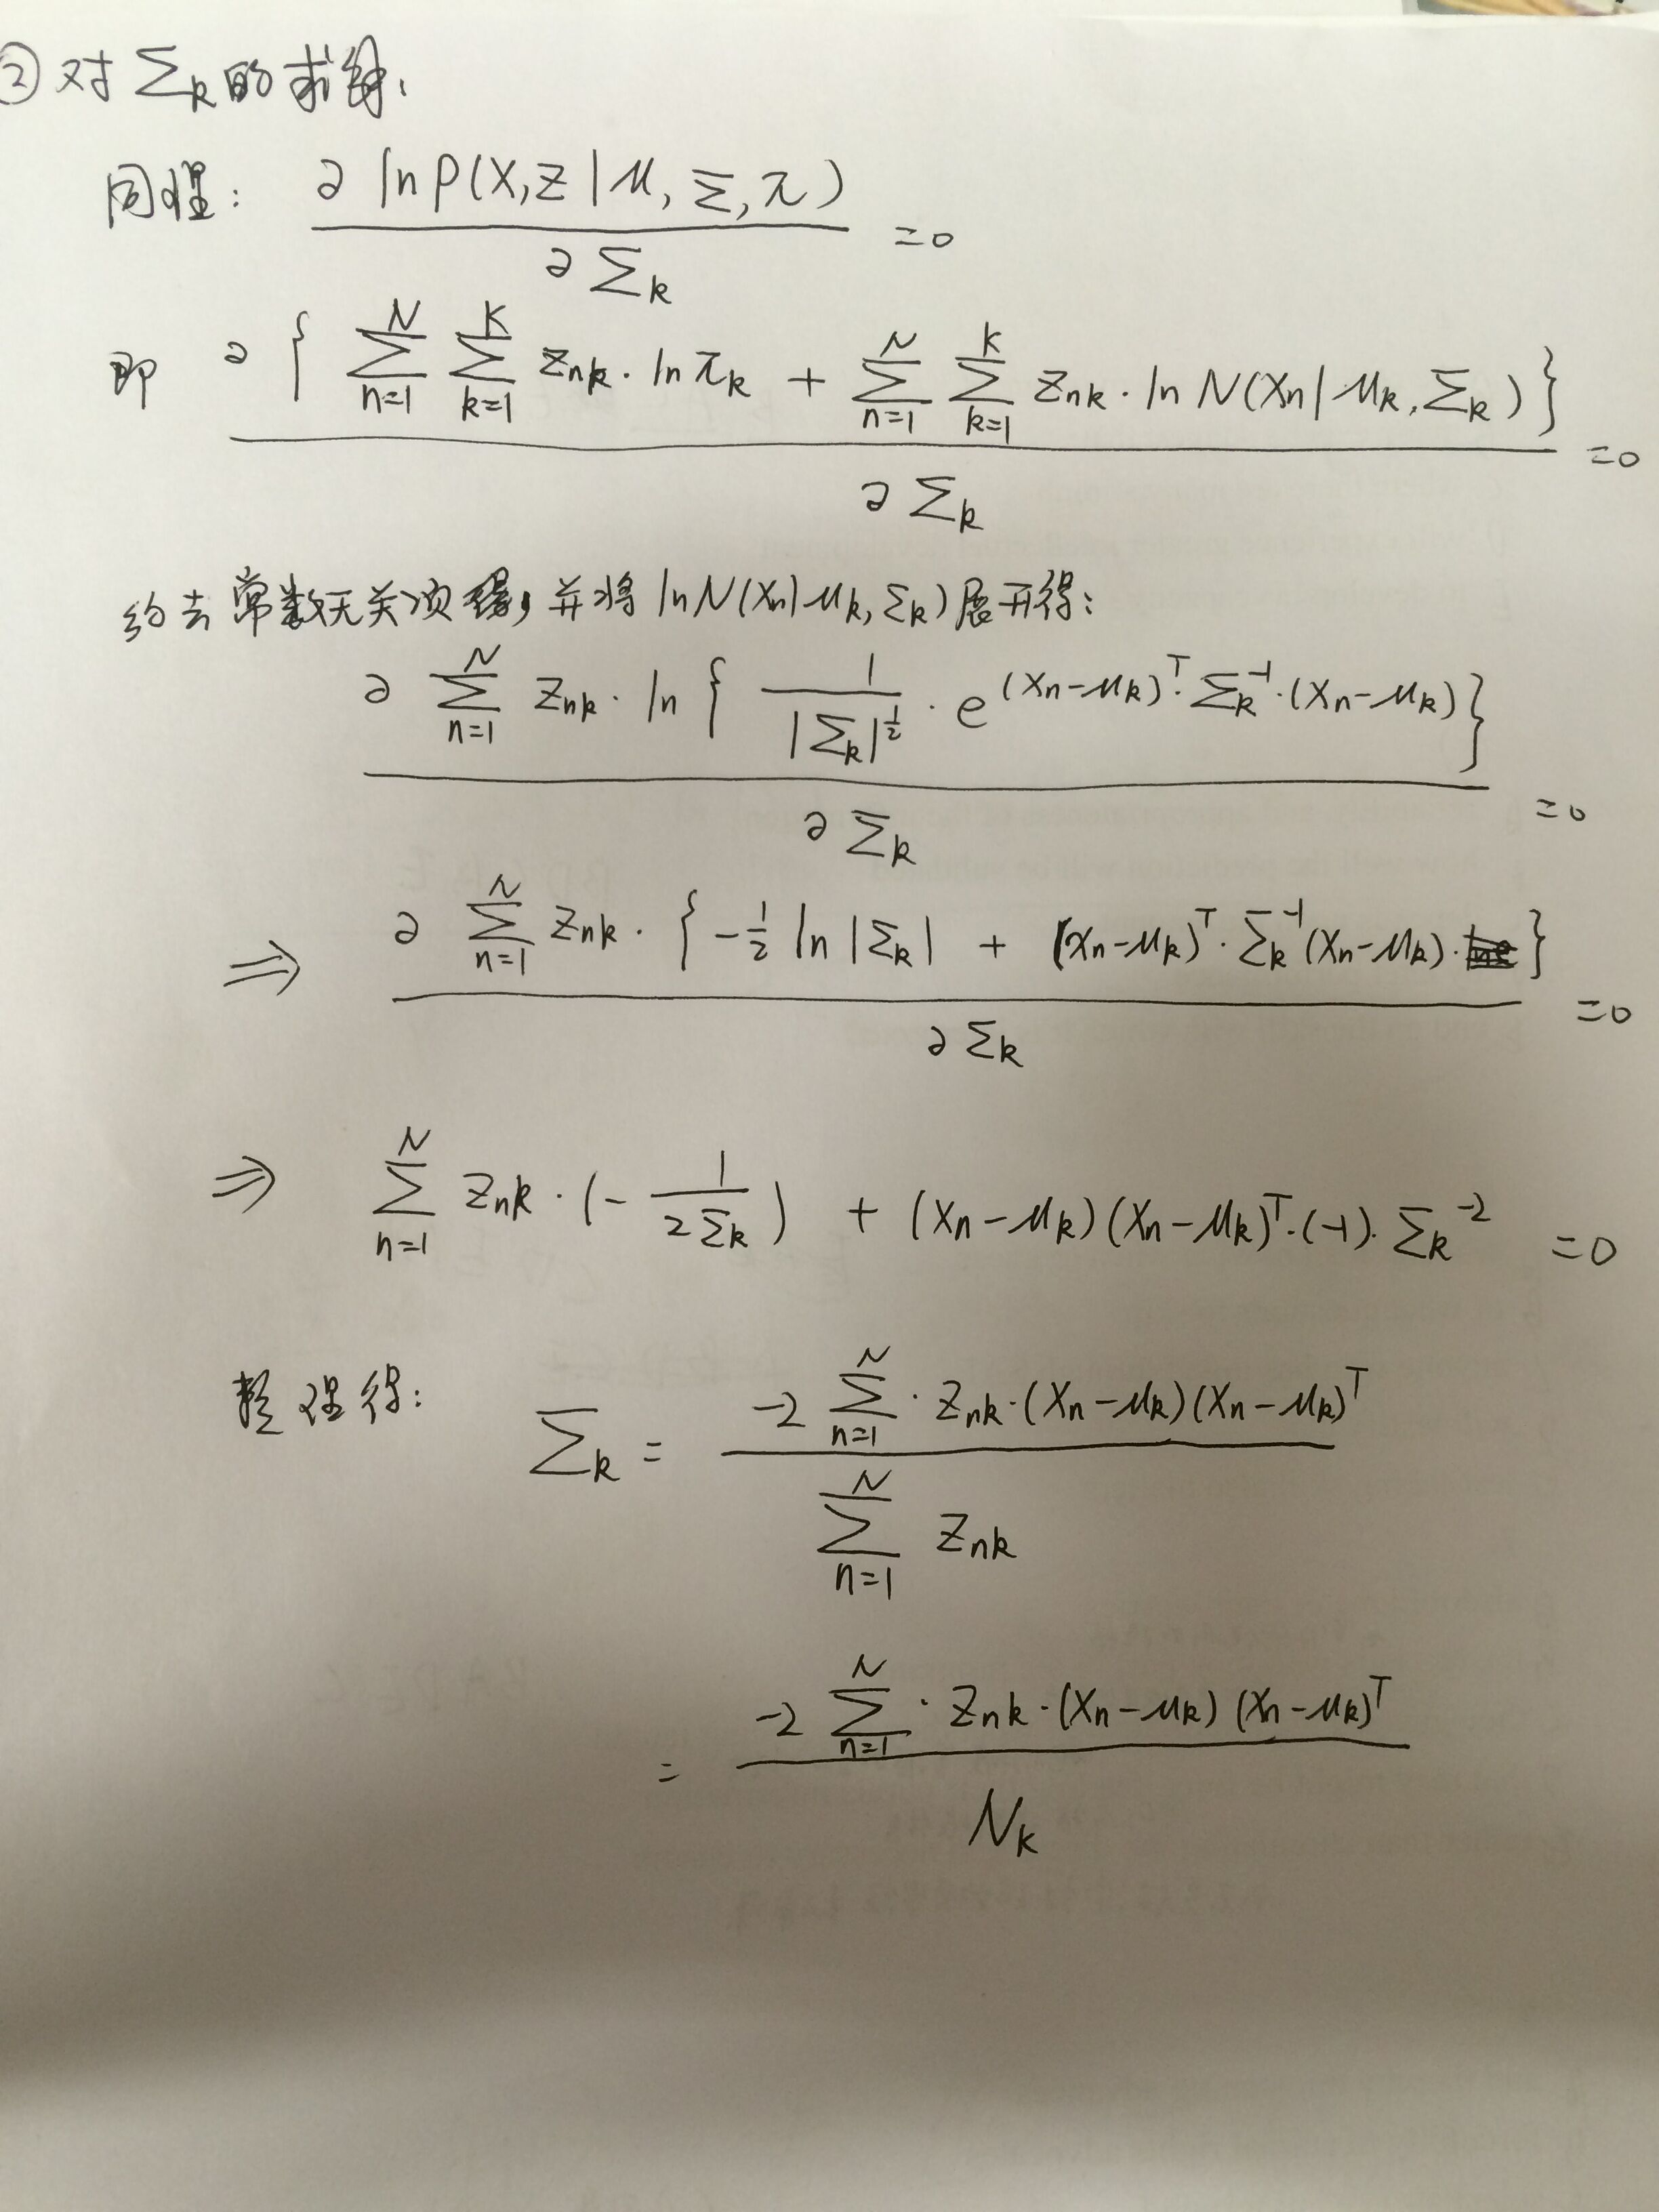 ② 对 Σk 的求解.
同理: ∂ ln P(X,Z|μ,Σ,π) / ∂Σk =0
即 ∂{ Σ_{n=1}^{N} Σ_{k=1}^{K} Znk · ln πk + Σ_{n=1}^{N} Σ_{k=1}^{K} Znk · ln N(Xn|μk,Σk) } / ∂Σk =0
约去常数无关项得, 并将 ln N(Xn|μk,Σk) 展开得:
∂ Σ_{n=1}^{N} Znk · ln { 1/|Σk|^{1/2} · e^{(Xn-μk)^T · Σk^{-1} · (Xn-μk)} } / ∂Σk =0
⇒ ∂ Σ_{n=1}^{N} Znk · { -1/2 ln|Σk| + (Xn-μk)^T · Σk^{-1} (Xn-μk) · } / ∂Σk =0
⇒ Σ_{n=1}^{N} Znk · (- 1/(2Σk)) + (Xn-μk)(Xn-μk)^T · (-1) · Σk^{-2} =0
整理得: Σk = -2 Σ_{n=1}^{N} · Znk · (Xn-μk)(Xn-μk)^T / Σ_{n=1}^{N} Znk
= -2 Σ_{n=1}^{N} · Znk · (Xn-μk)(Xn-μk)^T / Nk